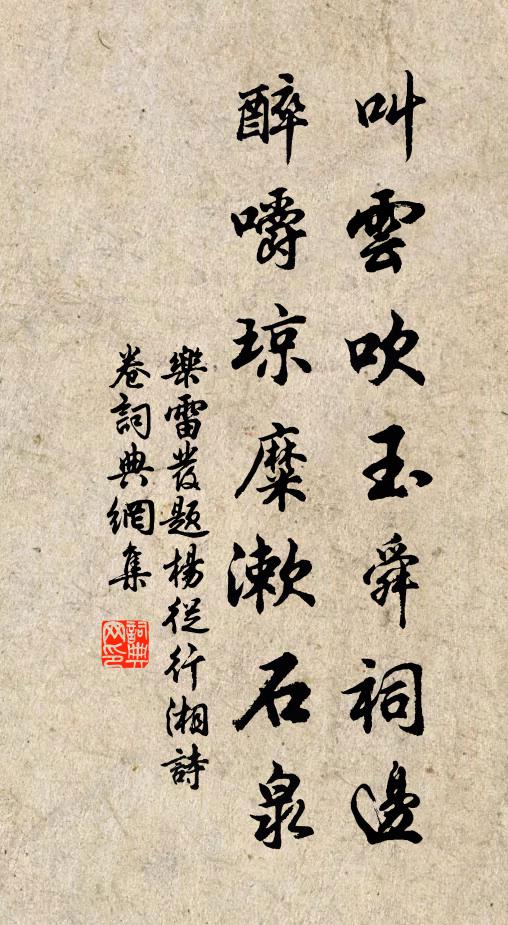 叫雲吹玉舜祠邊
醉嚼琼糜漱石泉
樂雷發題楊從行湘詩
卷詞典網集
詞典
网印